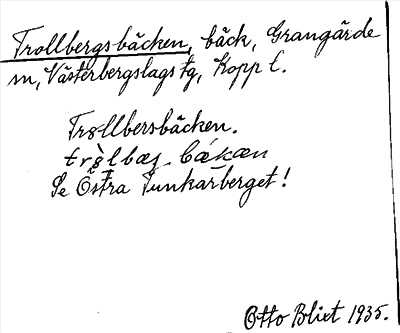 Trollbergsbäcken, bäck, Grangärde
sn, Västerbergslags tg, Kopp l.
Trollbersbäcken.
Se Östra Junkarberget!
Otto Blixt 1935.